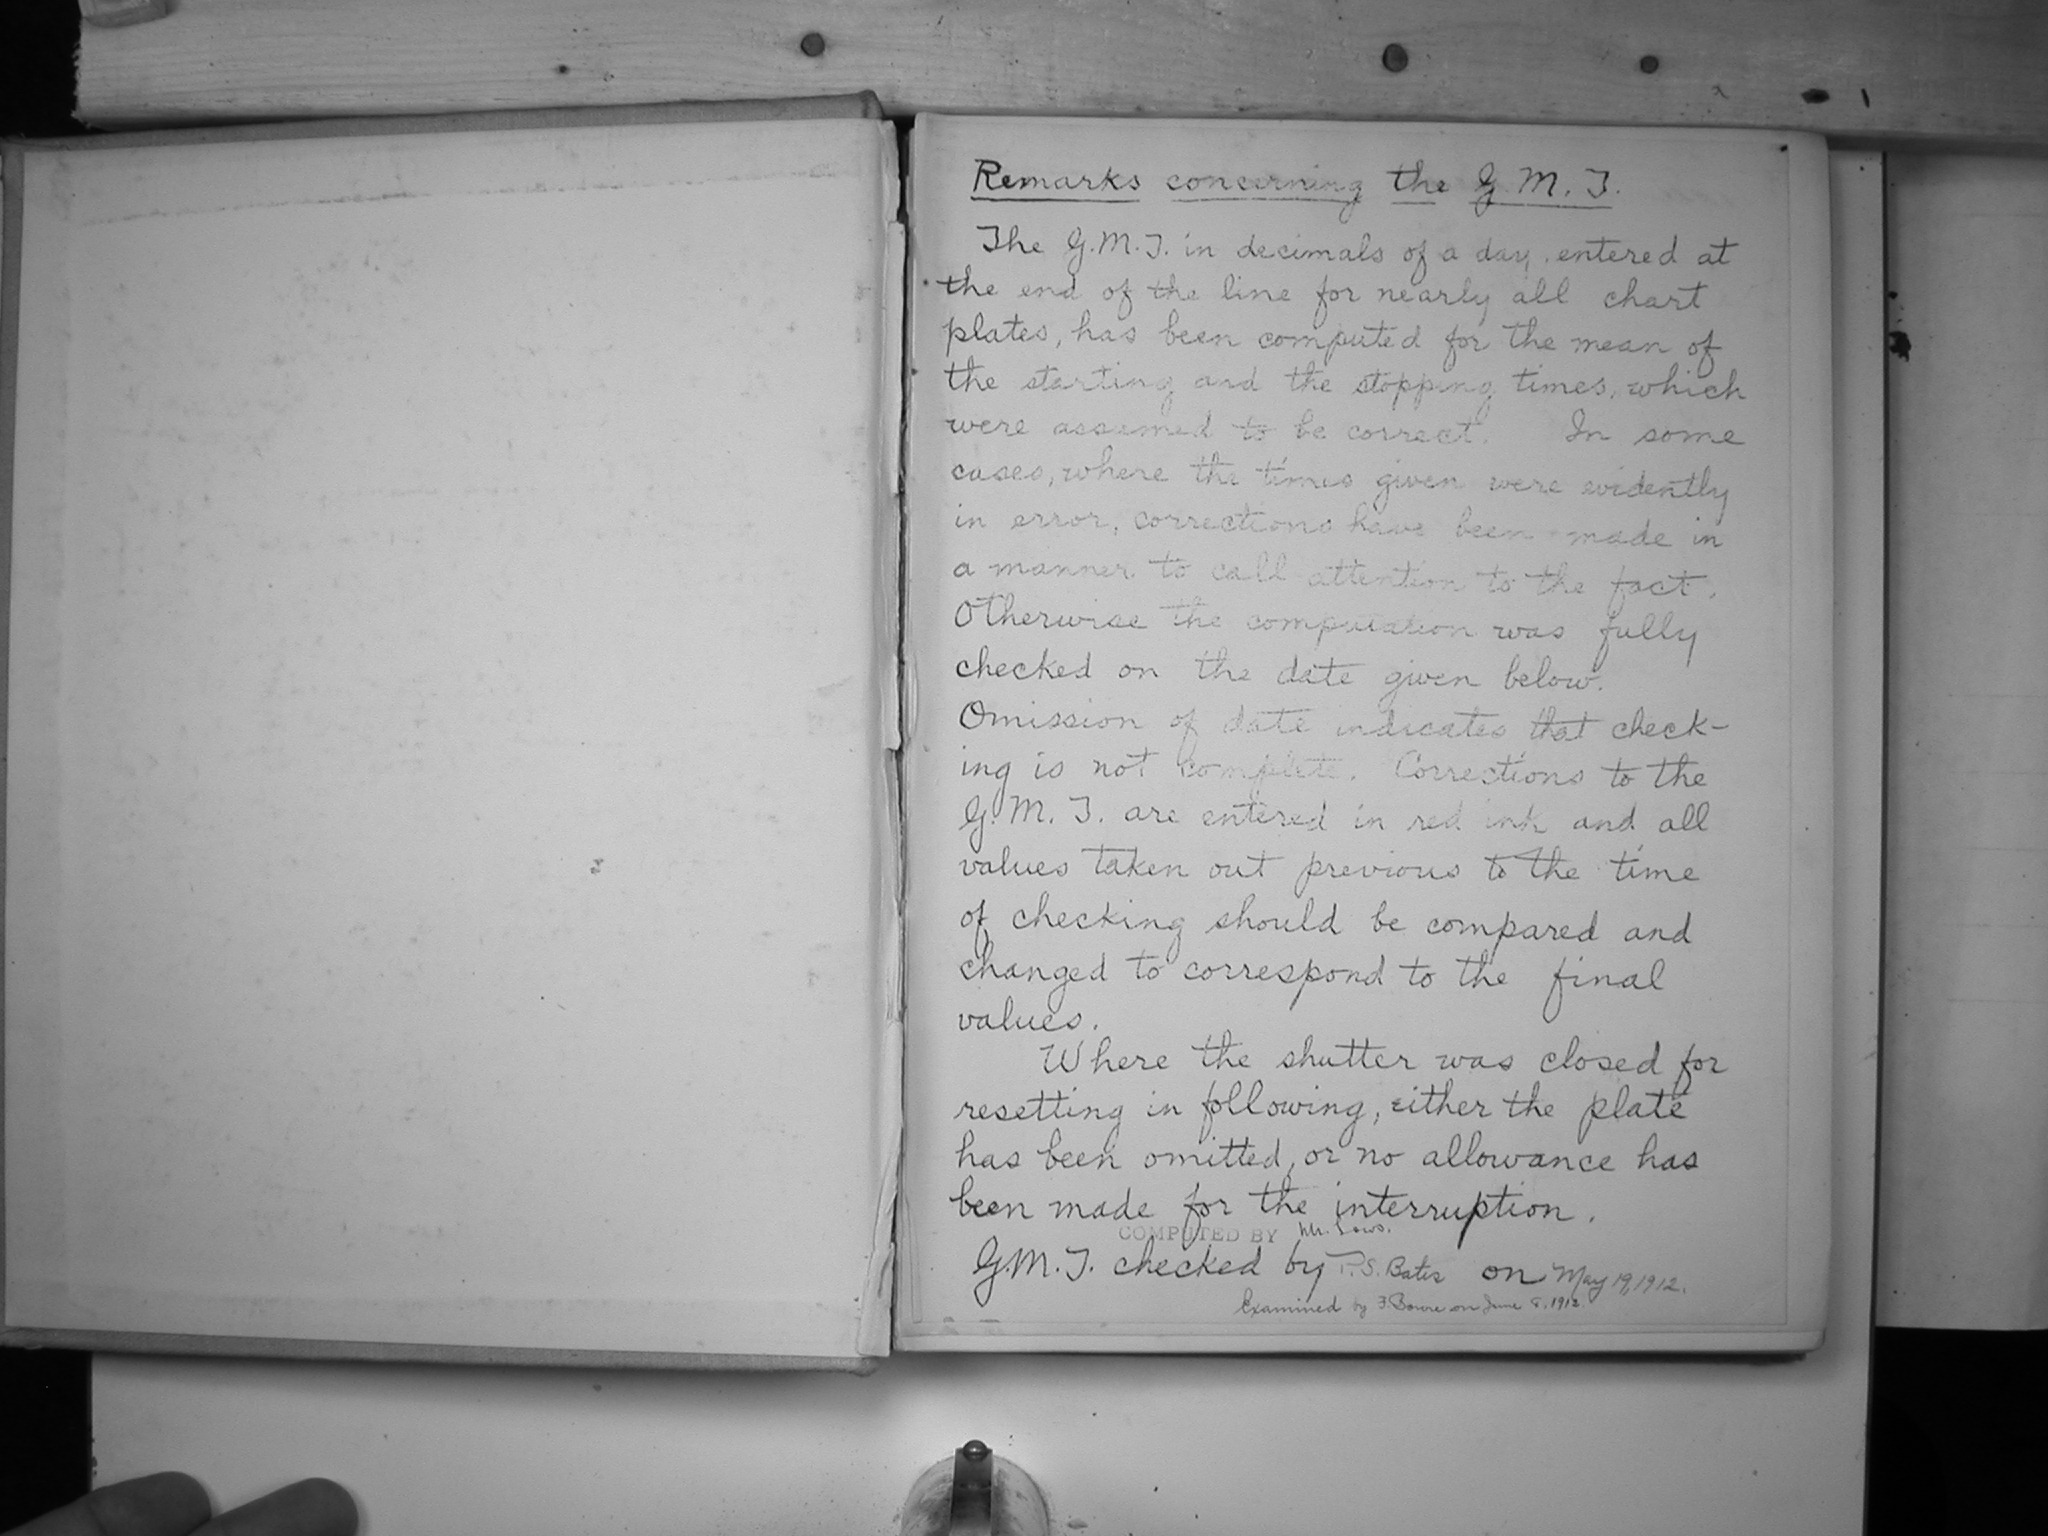 Remarks concerning the G.M.T.
The G.M.T. in decimals of a day, entered at
the end of the line for nearly all chart
plates, has been computed for the mean of
the starting and the stopping times, which
were assumed to be correct. In some
cases, where the times given were evidently
in error, corrections have been made in
a manner to call attention to the fact.
Otherwise the computation was fully
checked on the date given below.
Omission of date indicates that check-
ing is not complete. Corrections to the
G.M.T. are entered in red ink and all
values taken out previous to the time
of checking should be compared and
changed to correspond to the final
values.
Where the shutter was closed for
resetting in following, either the plate
has been omitted, or no allowance has
been made for the interruption.
COMPUTED BY
G.M.T. checked by S. Bates on May 19, 1912.
Examined by F. on June 8, 1912.